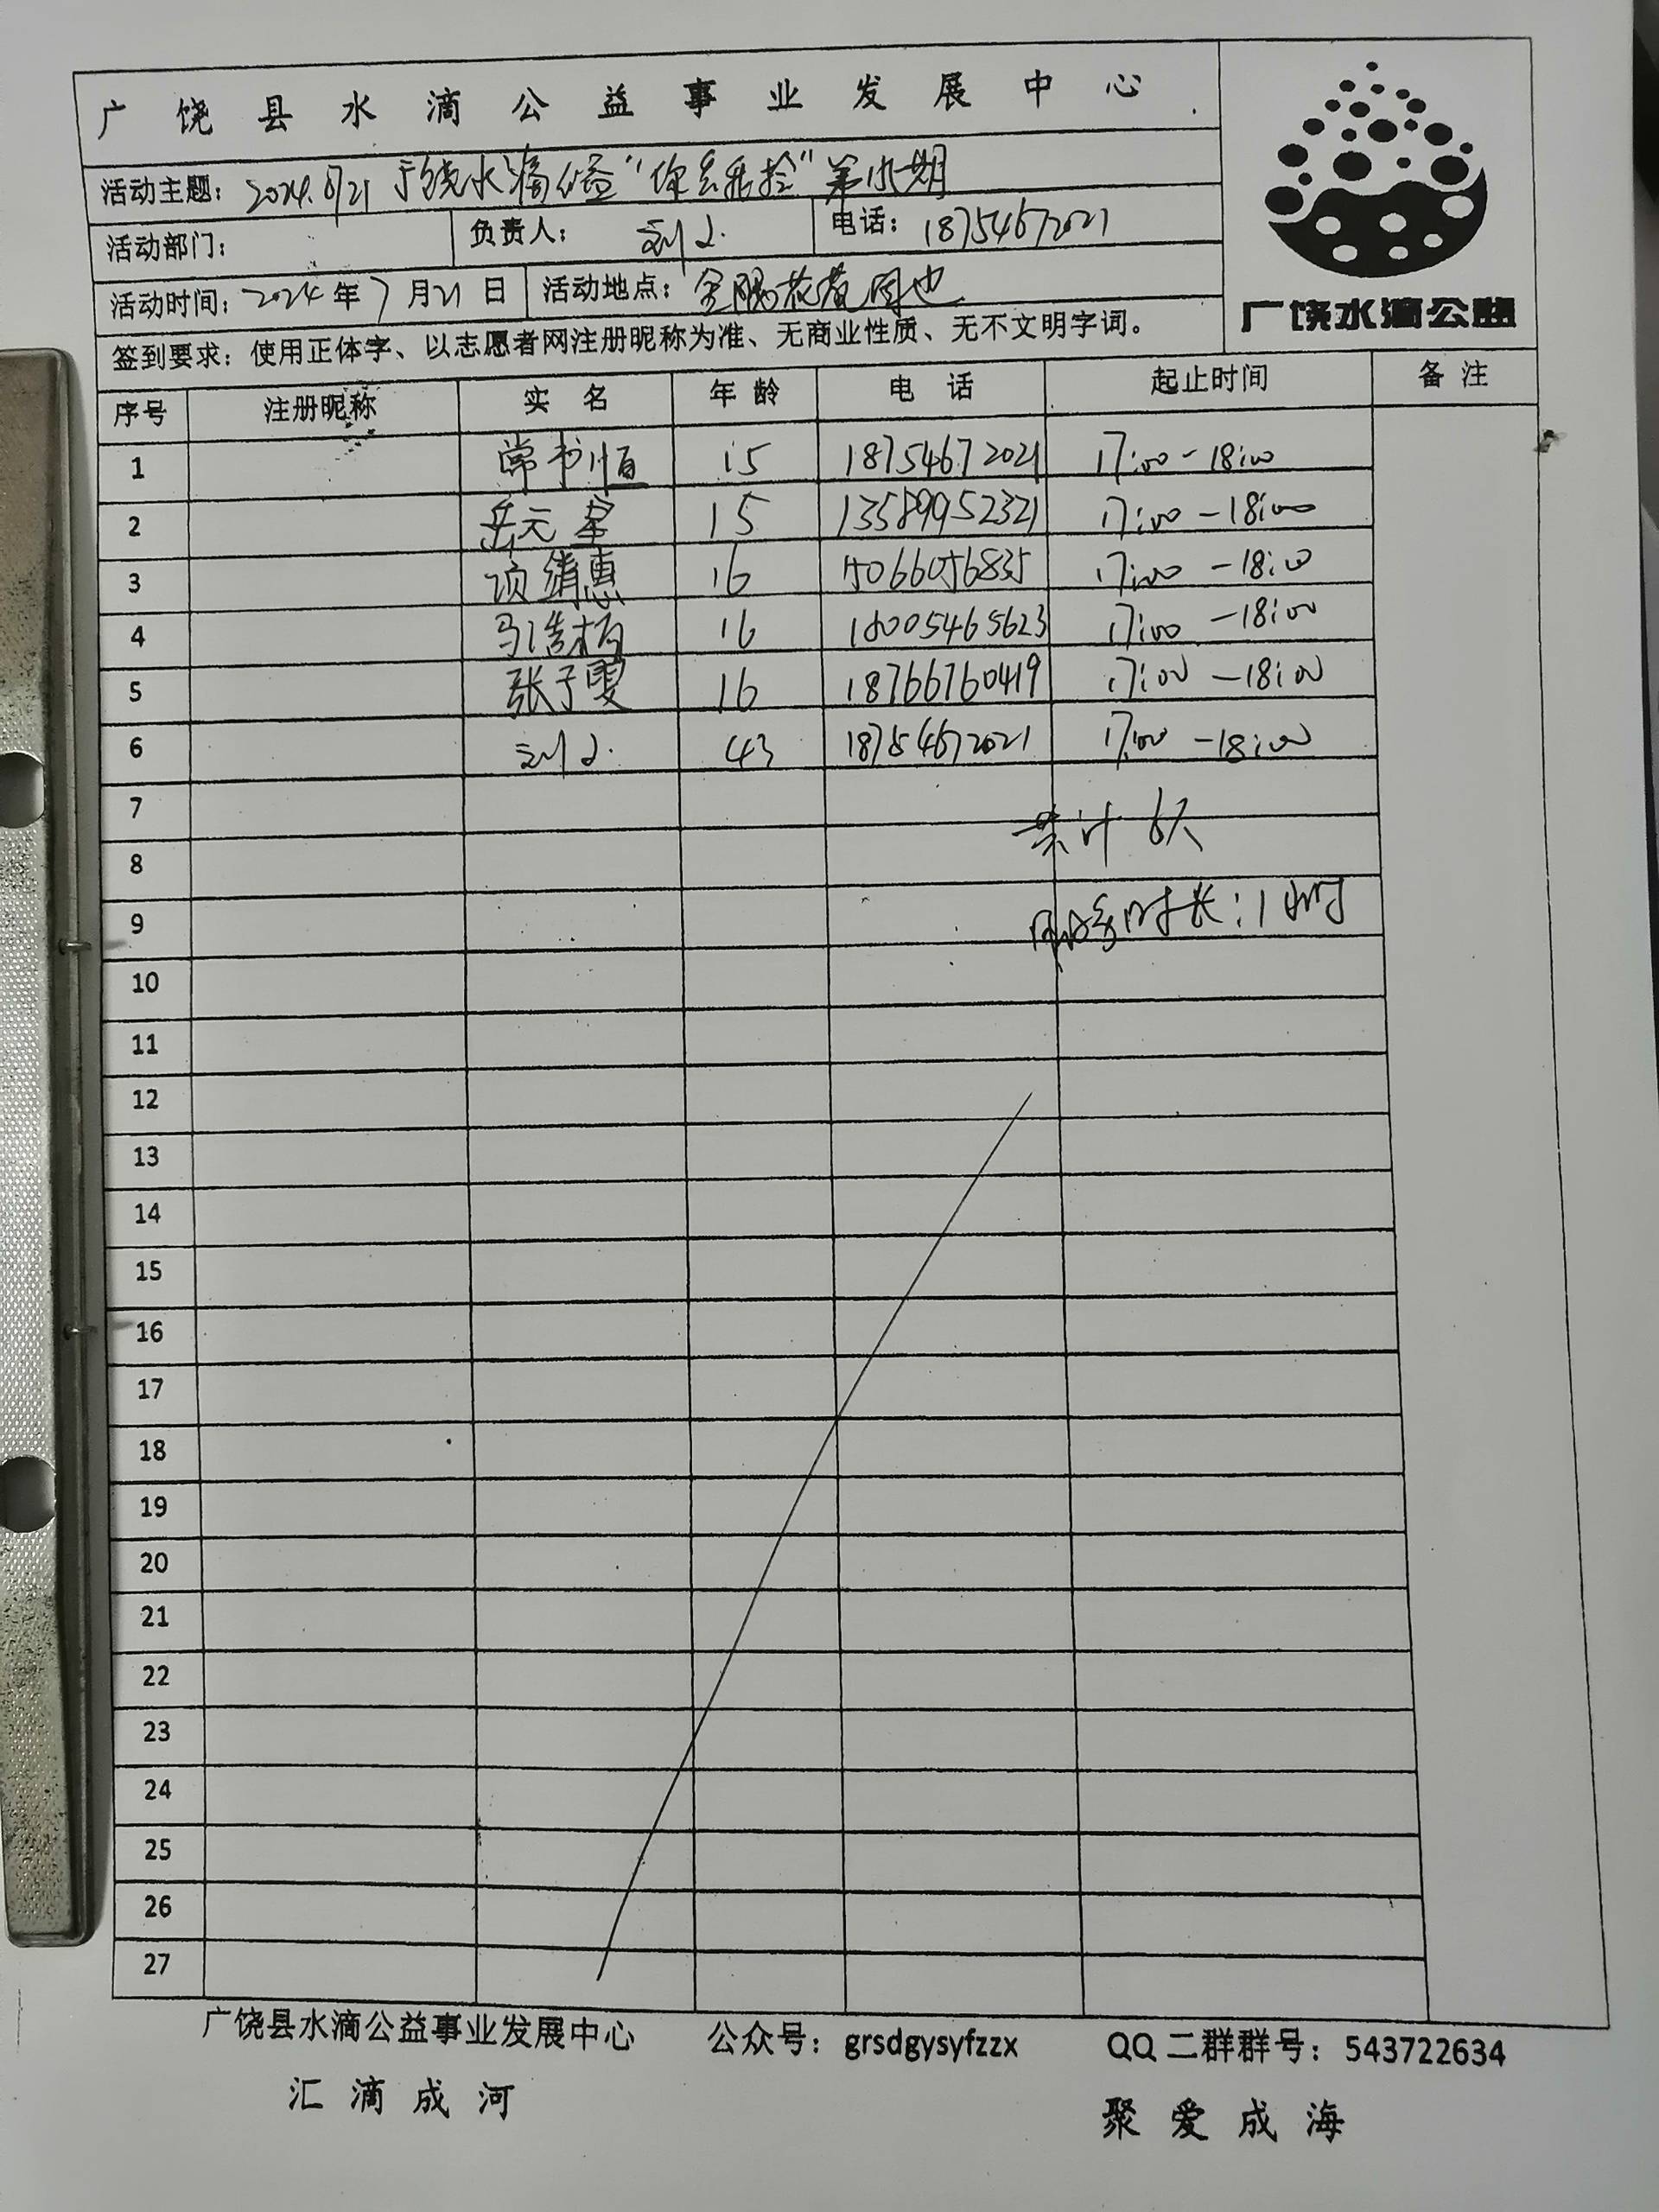 广饶县水滴公益事业发展中心
活动主题：2024.6/21 广饶水滴公益“你丢我捡”第 期
活动部门： 负责人：刘 电话：18754672021
活动时间：2024年7月21日 活动地点：金 花苑周边
签到要求：使用正体字、以志愿者网注册昵称为准、无商业性质、无不文明字词。
广饶水滴公益
序号 注册昵称 实 名 年 龄 电 话 起止时间 备 注
1 常书恒 15 18754672021 17:00-18:00
2 岳元 15 13589952321 17:00-18:00
3 项 惠 16 15066056835 17:00-18:00
4 马浩 16 18005465623 17:00-18:00
5 张子雯 16 18766760419 17:00-18:00
6 刘 43 18754672021 17:00-18:00
7
共计 6人
8
9
服务时长：1小时
10
11
12
13
14
15
16
17
18
19
20
21
22
23
24
25
26
27
广饶县水滴公益事业发展中心 公众号：grsdgysyfzzx QQ 二群群号：543722634
汇 滴 成 河 聚 爱 成 海